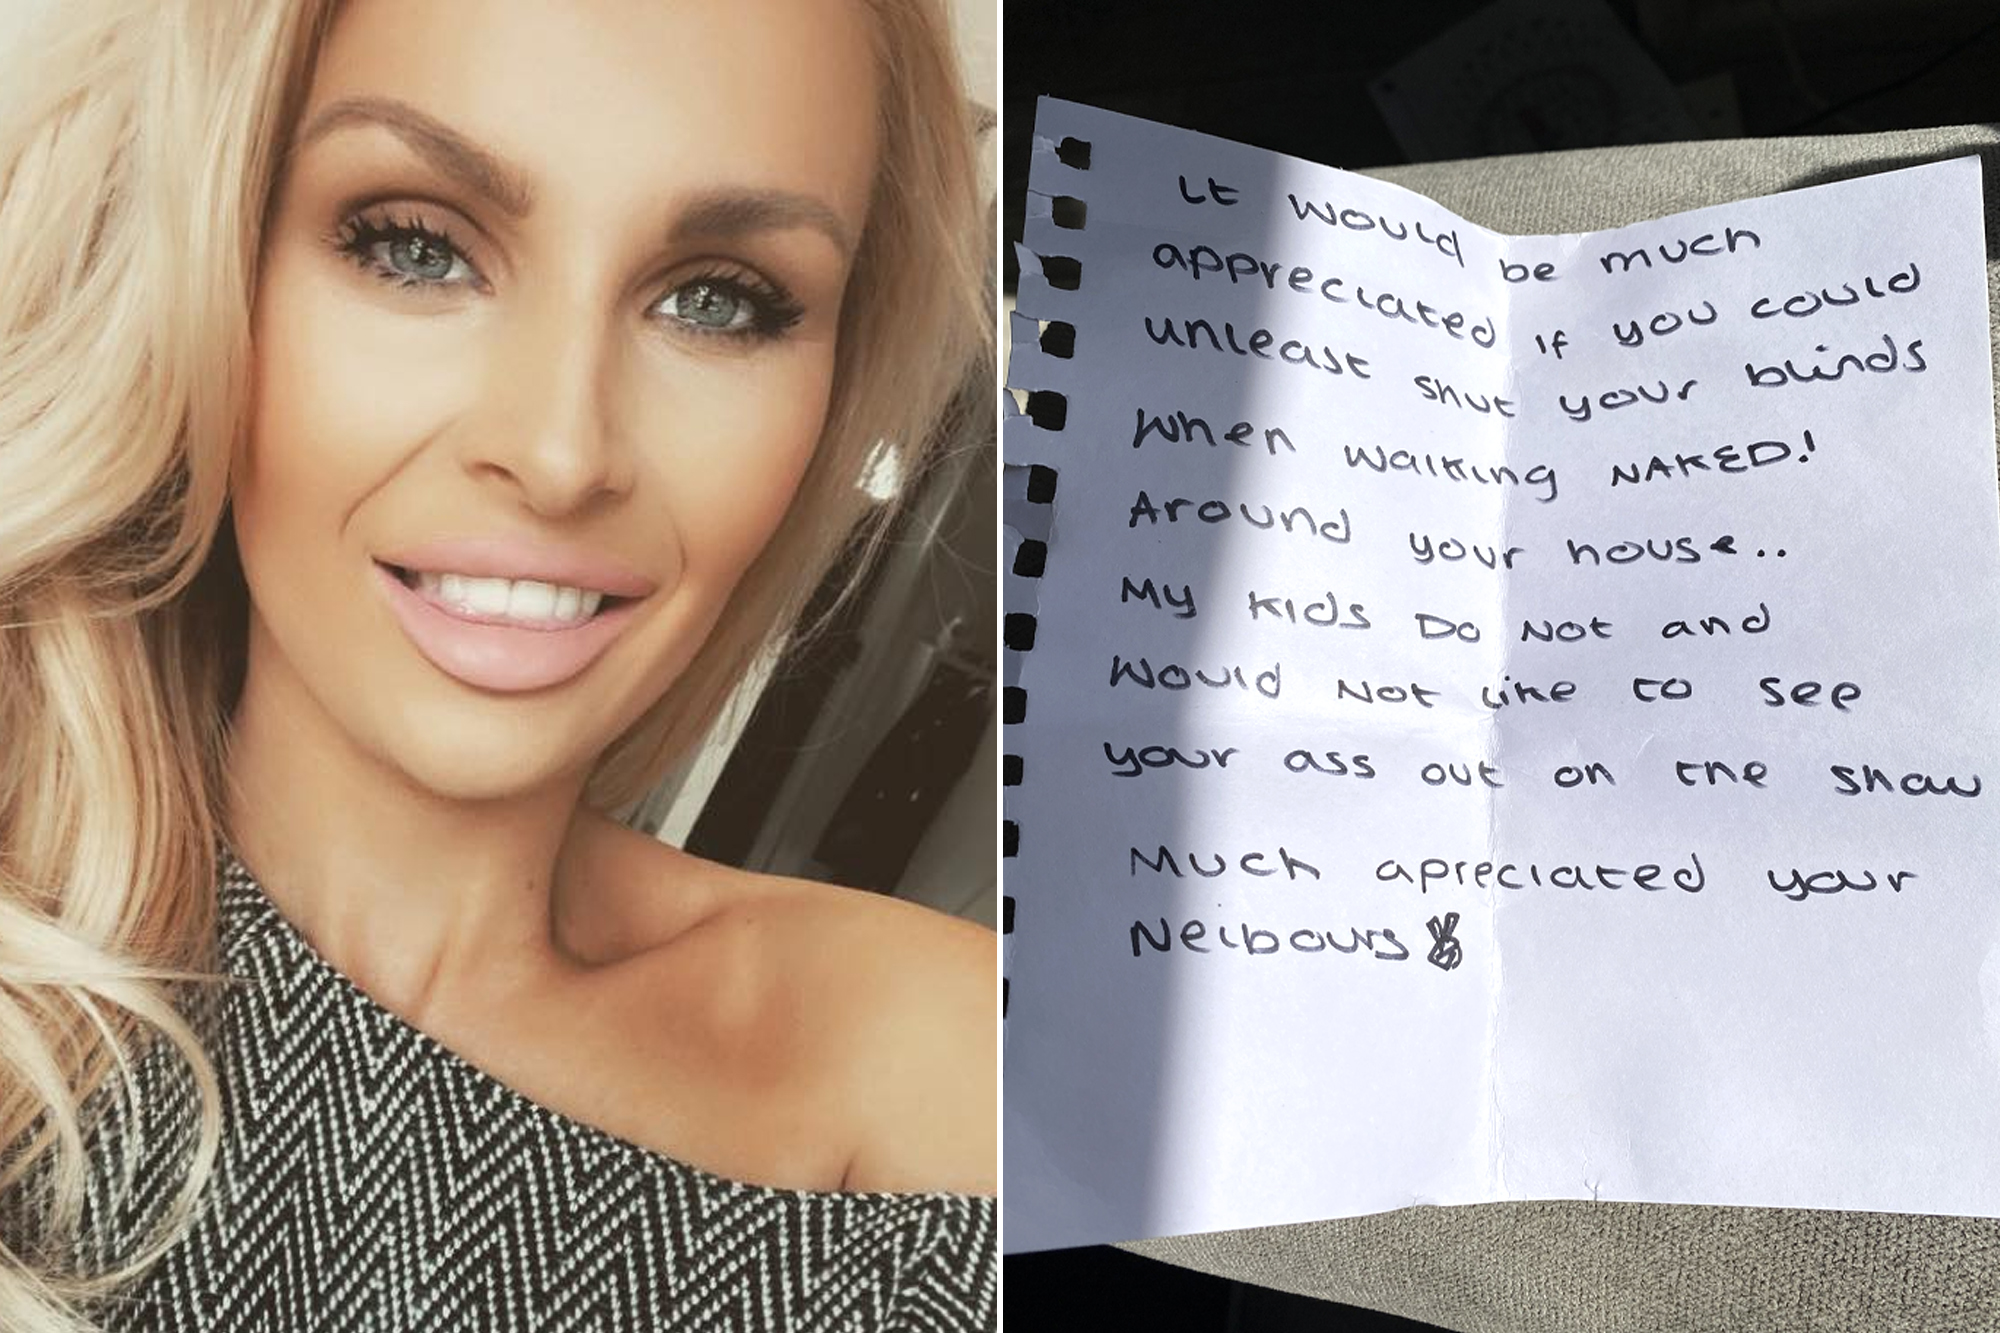 It would be much
appreciated if you could
unleast shut your blinds
when walking NAKED!
Around your house..
My kids Do Not and
Would Not like to see
your ass out on the show
Much apreciated your
Neibours